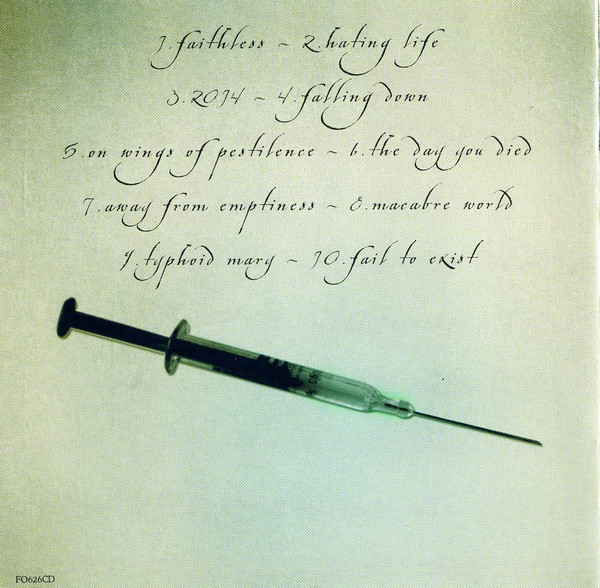 1.faithless ~ 2.hating life
3.2014 ~ 4.falling down
5.on wings of pestilence ~ 6.the day you died
7.away from emptiness ~ 8.macabre world
9.typhoid mary ~ 10.fail to exist
FO626CD